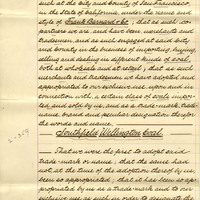 such at the City and County of San Francisco
in the State of California, under the name and
style of Frank Barnard & Co; that as such co-
partners we are, and have been, merchants and
tradesmen, and as such engaged at said city
and county in the business of importing, buying,
selling and dealing in different kinds of coal,
both at wholesale and at retail; that as such
merchants and tradesmen we have adopted and
appropriated to our exclusive use, upon and in
connection with a certain class of coals import-
ed and sold by us, and as a trade-mark, trade-
name, brand and peculiar designation therefor
the words and name
Southfield Wellington Coal.
That we were the first to adopt said
trade-mark or name; that the same had
not, at the time of the adoption thereof by us,
been so appropriated; that it has been so ap-
propriated by us as a trade-mark and to our
exclusive use as such in order to designate the